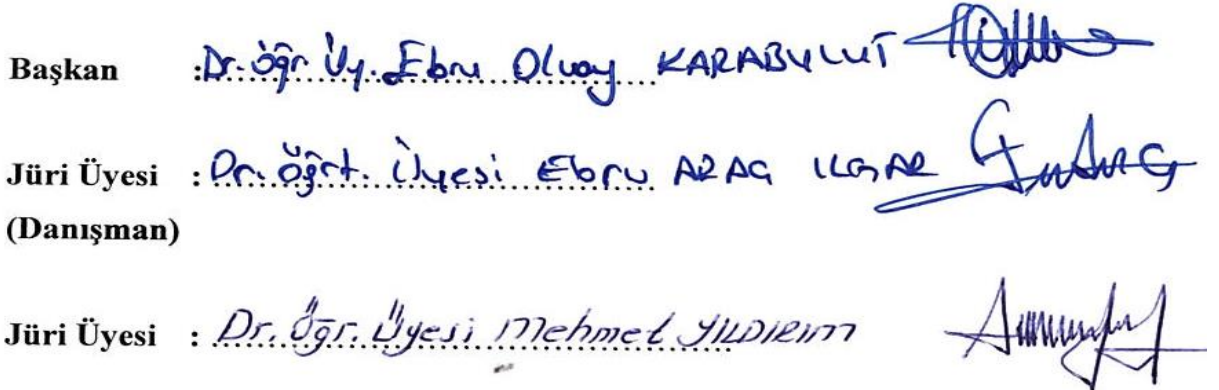 Başkan :Dr. Öğr. Üy. Ebru Olcay KARABULUT
Jüri Üyesi : Dr. Öğrt. Üyesi Ebru ARAG ILGAR
(Danışman)
Jüri Üyesi : Dr. Öğr. Üyesi Mehmet YILDIRIM